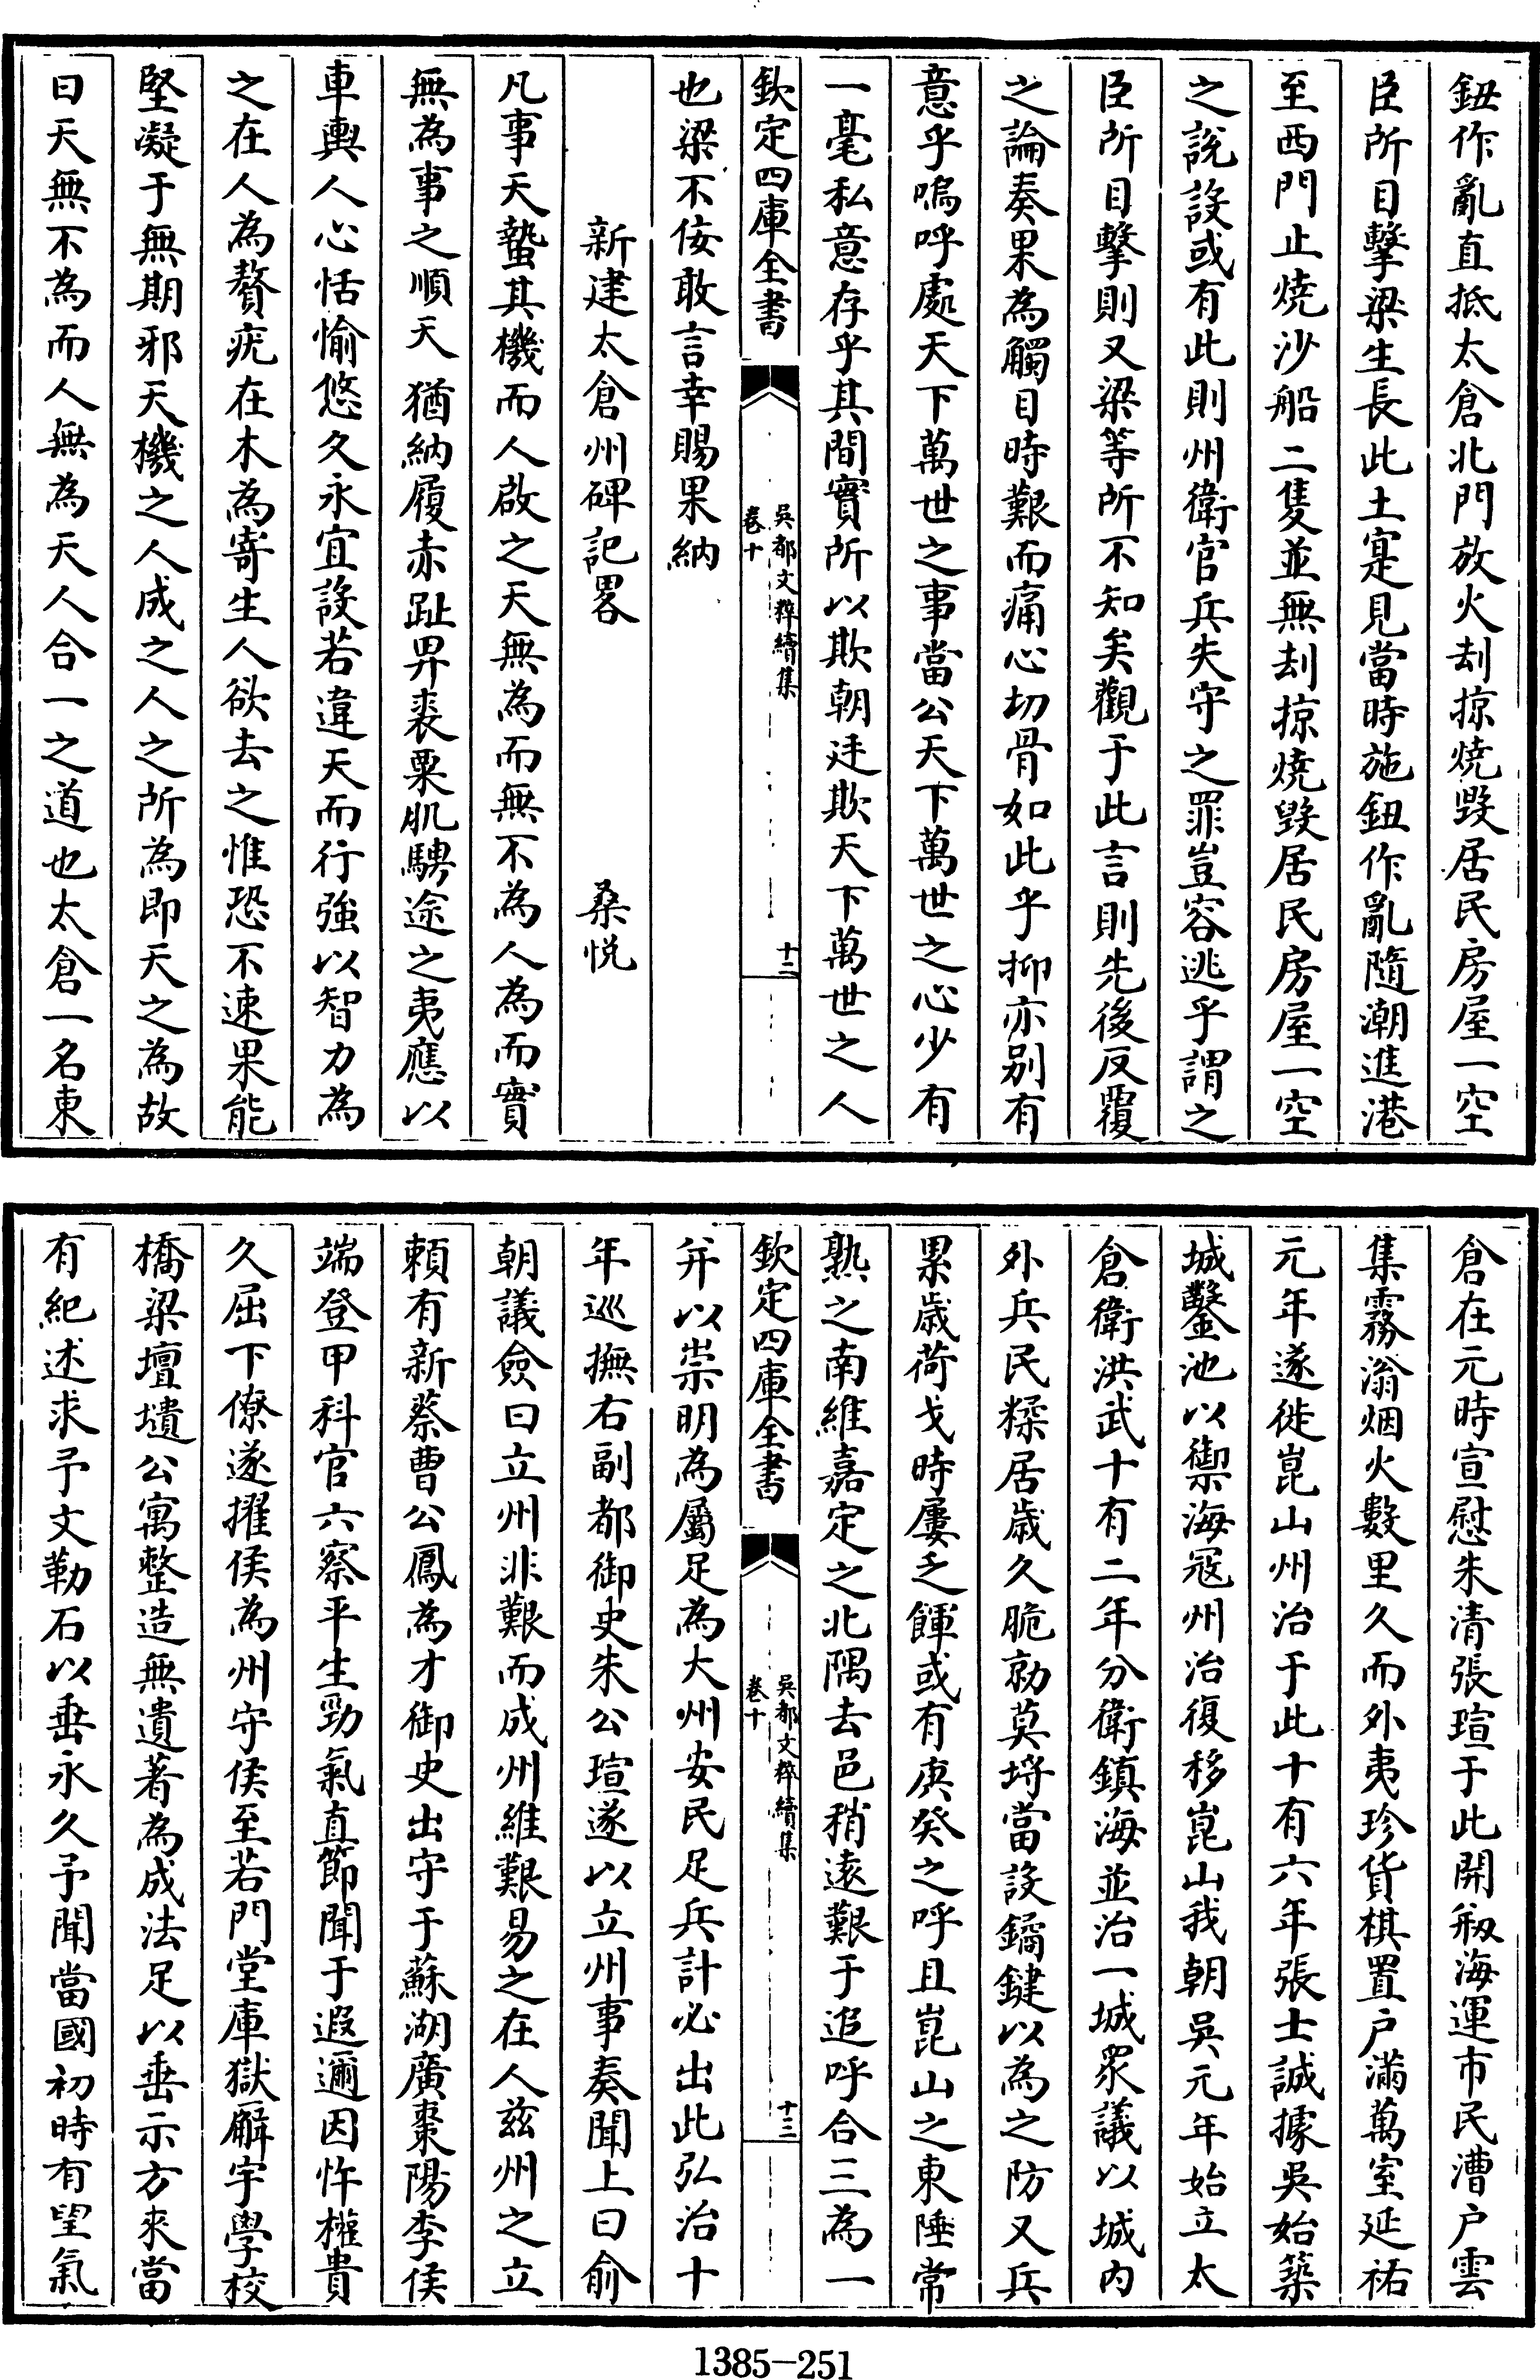 鈕作亂直抵太倉北門放火刦掠燒毀居民房屋一空
臣所目擊梁生長此土寔見當時施鈕作亂隨潮進港
至西門止燒沙船二隻並無刦掠燒毀居民房屋一空
之說設或有此則州衛官兵失守之罪豈容逃乎謂之
臣所目擊則又梁等所不知矣觀于此言則先後反覆
之論奏果為觸目時艱而痛心切骨如此乎抑亦别有
意乎嗚呼處天下萬世之事當公天下萬世之心少有
一毫私意存乎其間實所以欺朝廷欺天下萬世之人
欽定四庫全書
吳都文粹續集
卷十
十二
也梁不佞敢言幸賜果納
新建太倉州碑記畧
桑悅
凡事天蟄其機而人啟之天無為而無不為人為而實
無為事之順天猶納履赤趾畀裘粟肌騁途之夷應以
車輿人心恬愉悠久永宜設若違天而行強以智力為
之在人為贅疣在木為寄生人欲去之惟恐不速果能
堅凝于無期邪天機之人成之人之所為即天之為故
曰天無不為而人無為天人合一之道也太倉一名東
倉在元時宣慰朱清張瑄于此開剏海運市民漕户雲
集霧滃烟火數里久而外夷珍貨棋置户滿萬室延祐
元年遂徙崑山州治于此十有六年張士誠據吳始築
城鑿池以禦海冦州治復移崑山我朝吳元年始立太
倉衛洪武十有二年分衛鎮海並治一城衆議以城内
外兵民糅居歳久脆勍莫埓當設鐍鍵以為之防又兵
累歳荷戈時屢乏餫或有庚癸之呼且崑山之東陲常
熟之南維嘉定之北隅去邑稍逺艱于追呼合三為一
欽定四庫全書
吳都文粹續集
卷十
十三
并以崇明為屬足為大州安民足兵計必出此弘治十
年巡撫右副都御史朱公瑄遂以立州事奏聞上曰俞
朝議僉曰立州非艱而成州維艱易之在人兹州之立
頼有新蔡曹公鳳為才御史出守于蘇湖廣棗陽李侯
端登甲科官六察平生勁氣直節聞于遐邇因忤權貴
久屈下僚遂擢侯為州守侯至若門堂庫獄廨宇學校
橋梁壇壝公寓整造無遺著為成法足以垂示方來當
有紀述求予文勒石以垂永久予聞當國初時有望氣
1385-251